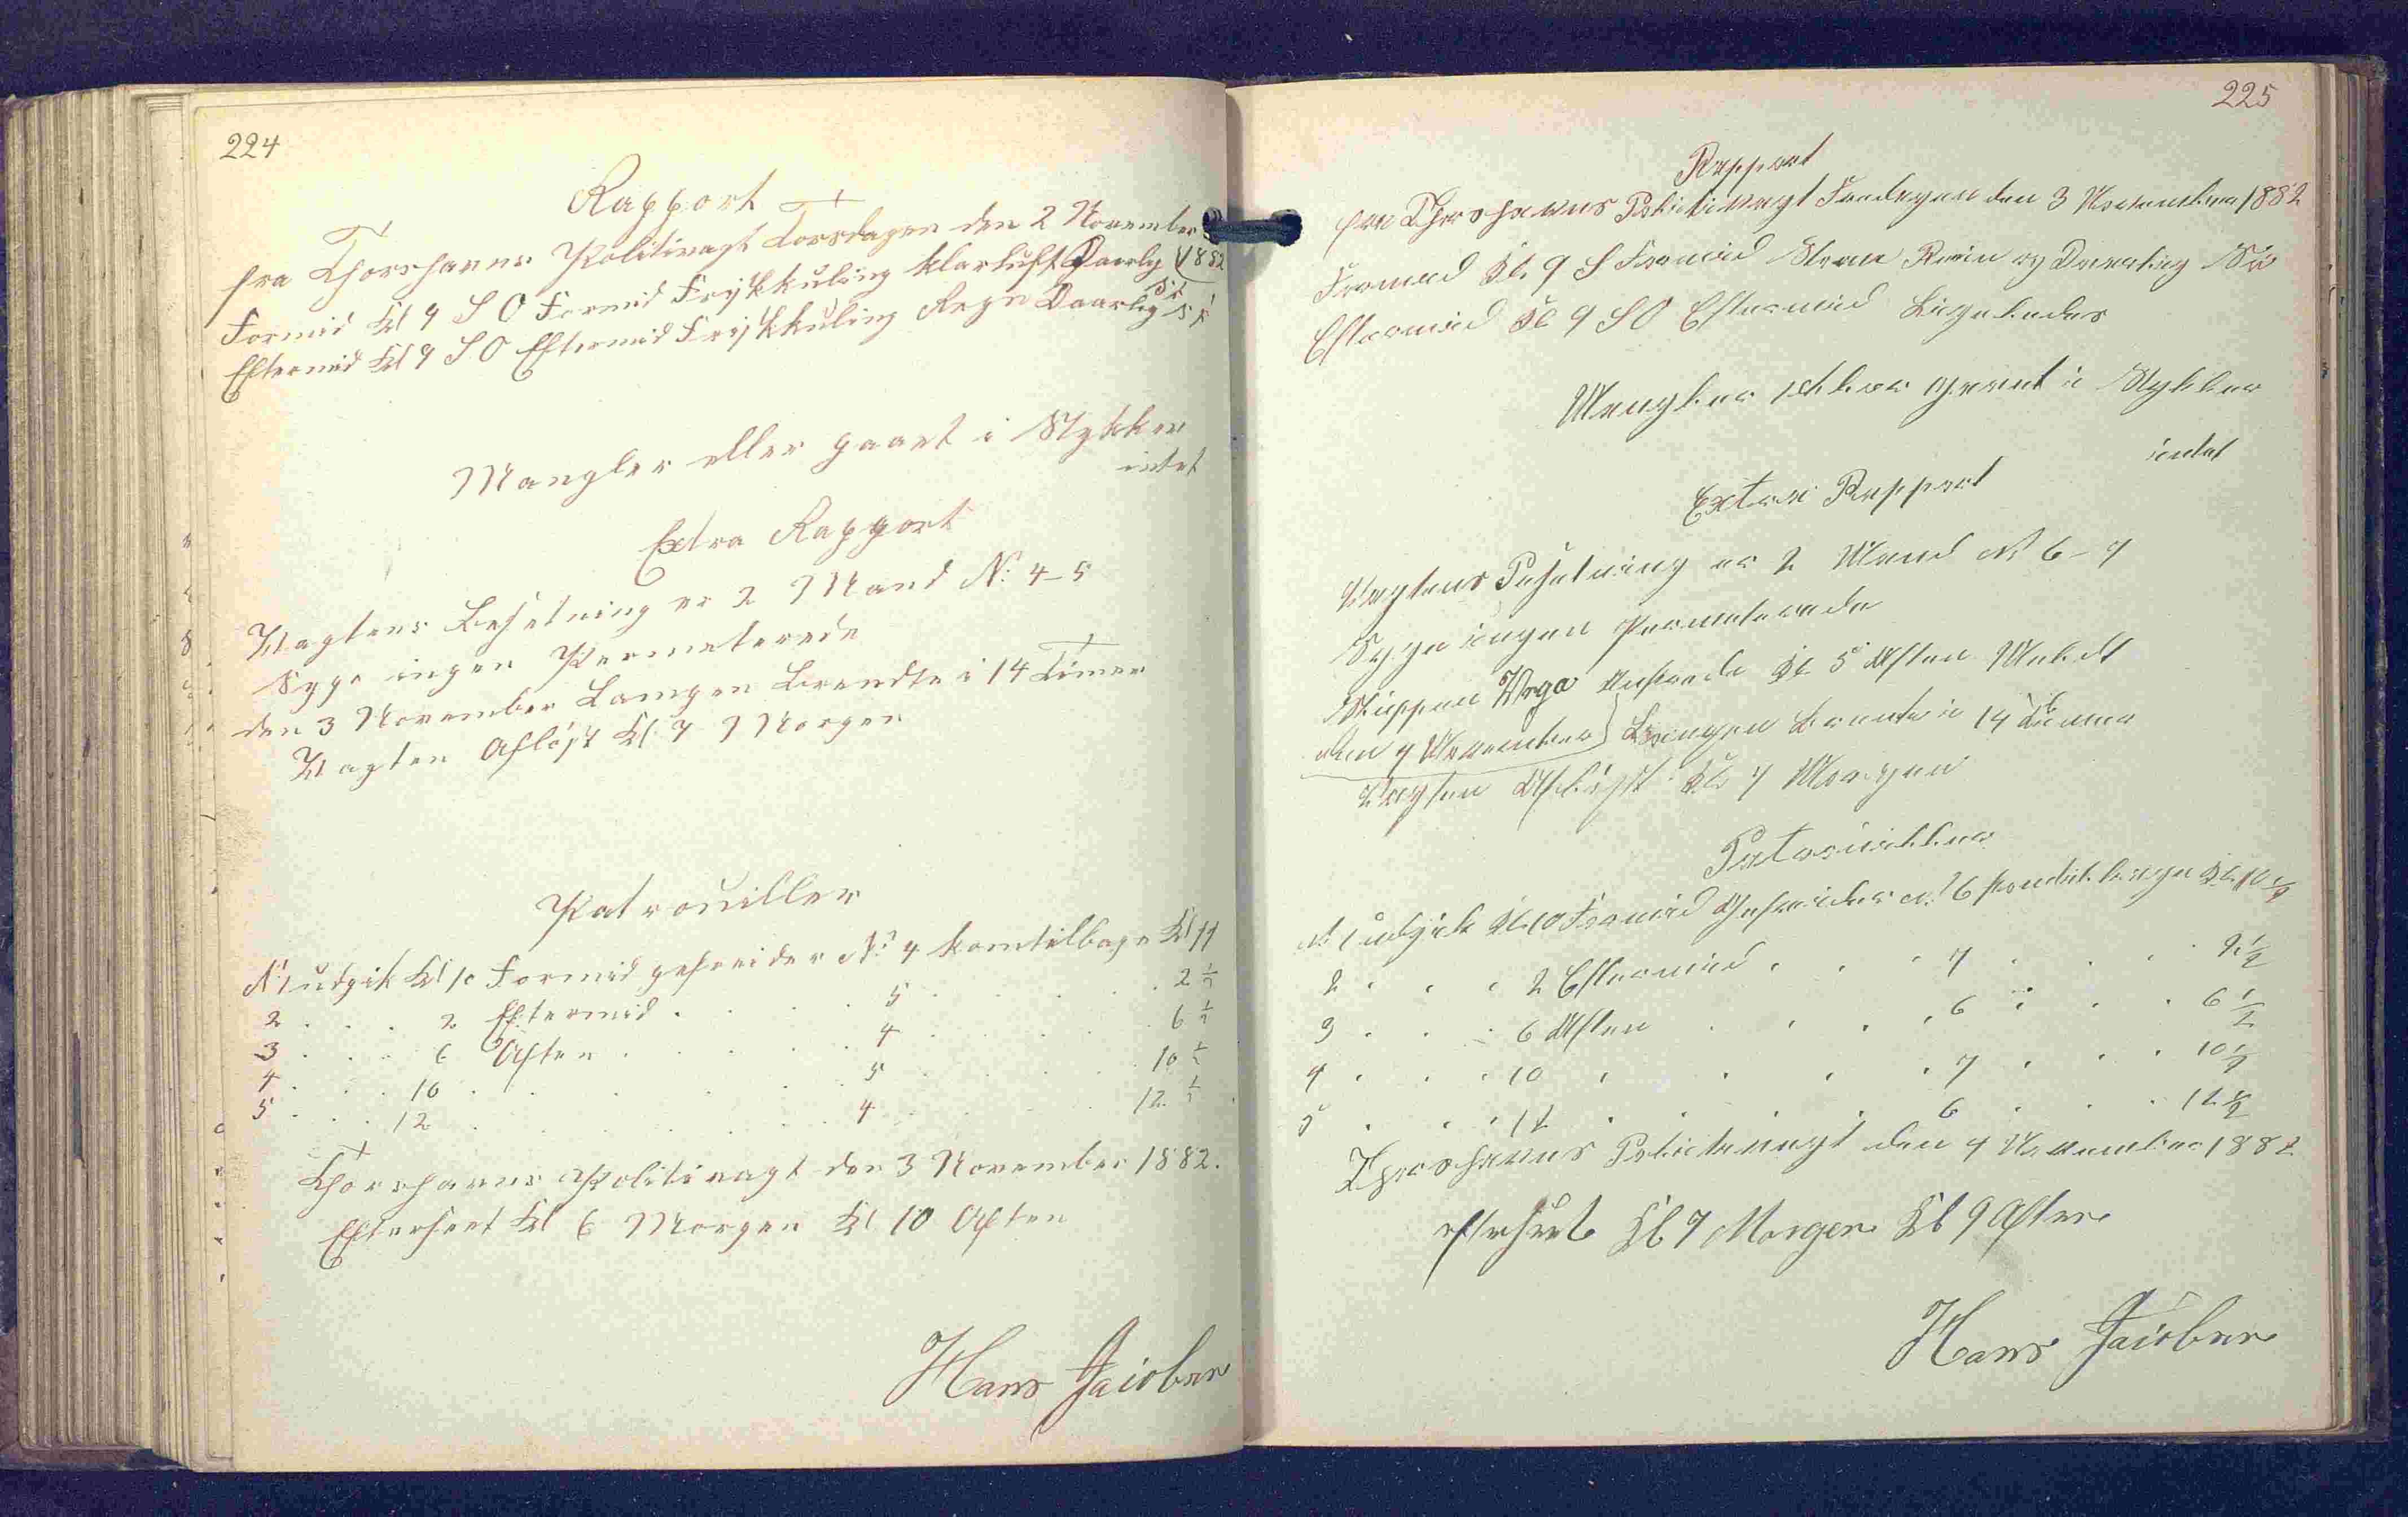 224
Rapport
fra Thorshavns Politivagt Torsdagen den 2 November 1882
Formid Kl 9 S O Formid Friskkuling klarluft Daarlig Sø
Eftermid Kl 9 S O Eftermid Friskkuling Regn Daarlig Sø
Mangler eller gaaet i Stykker
intet
Extra Rapport
Vagtens Besetning er 2 Mand No 4-5
Syge ingen Permeterede
den 3 November Lampen Brendte i 14 Timer
Vagten Afløst Kl 7 Morgen
Patrouiller
No 1 udgik Kl 10 Formid gefreider No 4 kom tilbage Kl 11
2 . . . 2 Eftermid . . . 5 . . . 2 1/2
3 . . . 6 Aften . . . 4 . . . 6 1/2
4 . . . 10 . . . 5 . . . 10 1/2
5 . . . 12 . . . 4 . . . 12 1/2
Thorshavns Politivagt den 3 November 1882.
Efterseet Kl 6 Morgen Kl 10 Aften
Hans Jacobsen
225
Rapport
fra Thorshavns Politivagt Fredagen den 3 November 1882
Formid Kl. 9 S Formid Storm Rein og Daarlig Sø
Eftermid Kl 9 S O Eftermid Ligeledes
Mangler eller gaaet i Stykker
intet
Extra Rapport
Vagtens Besetning er 2 Mand No 6-7
Syge ingen Permeterede
Skippen Vega Ankrede Kl 5 Aften
den 4 November Lampen Brente i 14 Timer
Vagten Afløst Kl 7 Morgen
Patrouiller
No 1 udgik Kl 10 Formid Gefreider No 6 kom tilbage Kl 10 1/2
2 . . . 2 Eftermid . . . 7 . . . 2 1/2
3 . . . 6 Aften . . . 6 . . . 6 1/2
4 . . . 10 . . . 7 . . . 10 1/2
5 . . . 12 . . . 6 . . . 12 1/2
Thorshavns Politivagt den 4 November 1882
efterseet Kl 7 Morgen Kl 9 Aften
Hans Jacobsen